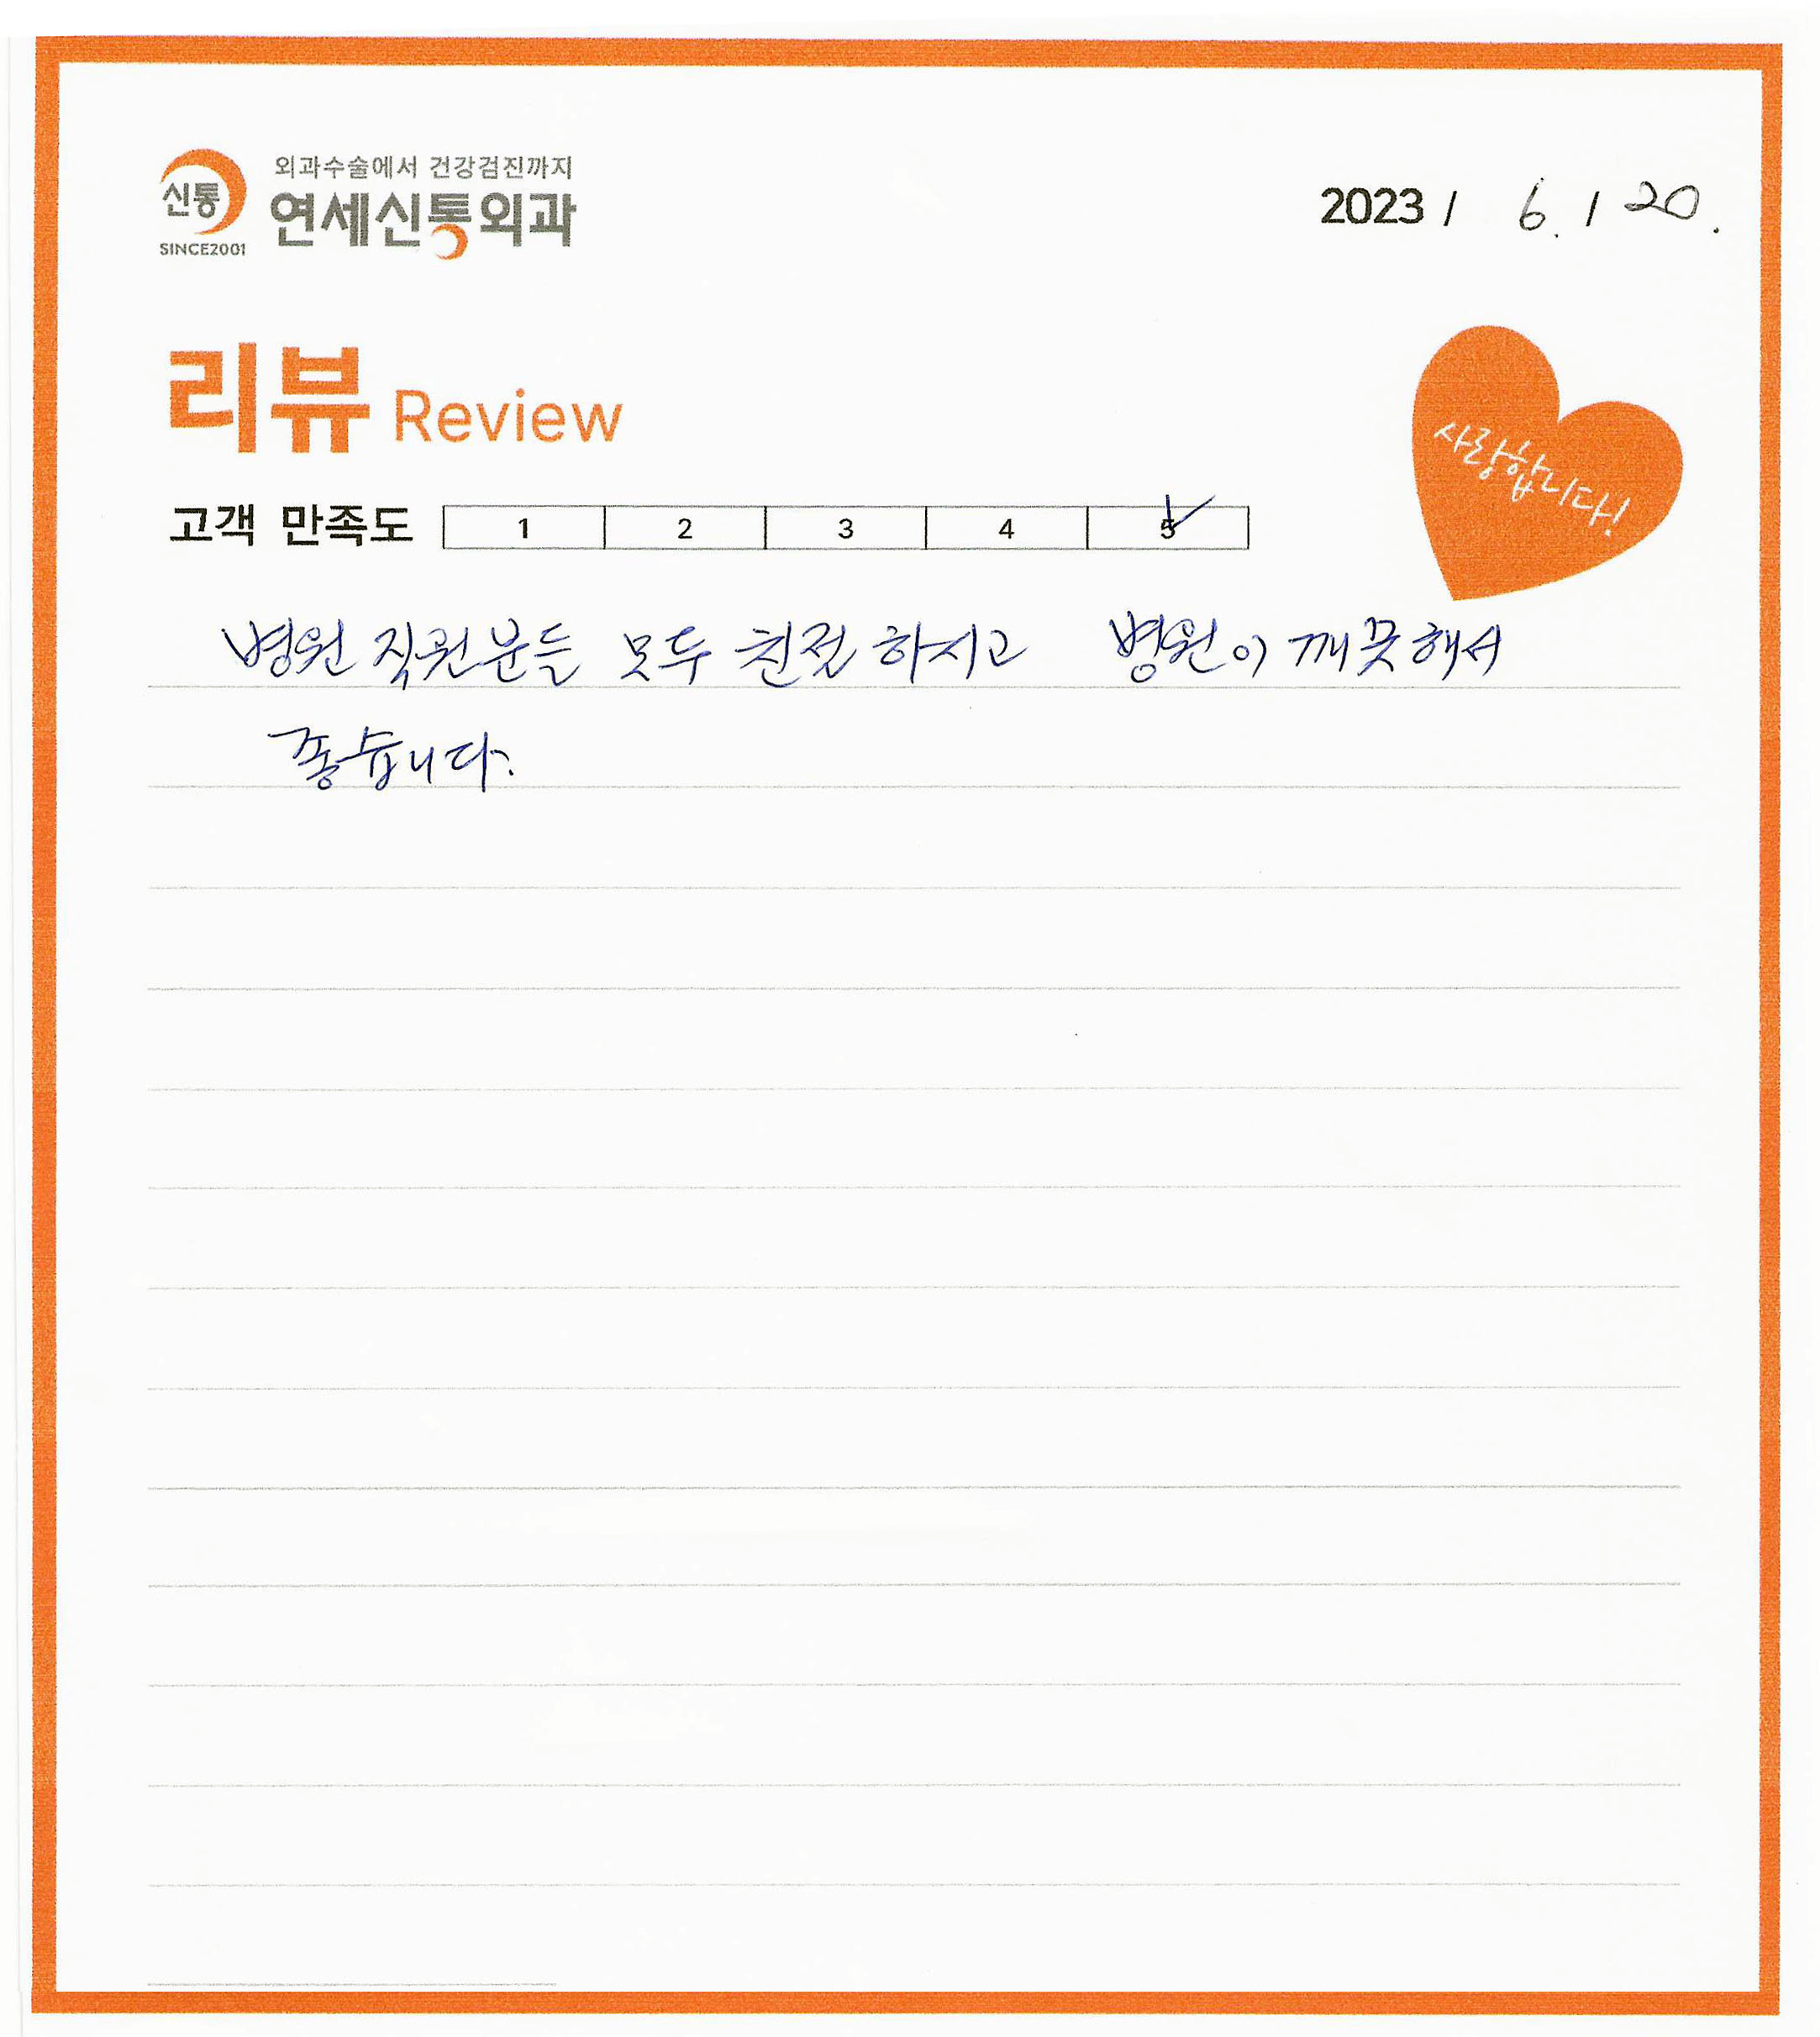 신통
SINCE2001
외과수술에서 건강검진까지
연세신통외과
2023 / 6. / 20.
리뷰 Review
사랑합니다!
고객 만족도 1 2 3 4 5
병원 직원분들 모두 친절 하시고 병원이 깨끗해서
좋습니다.